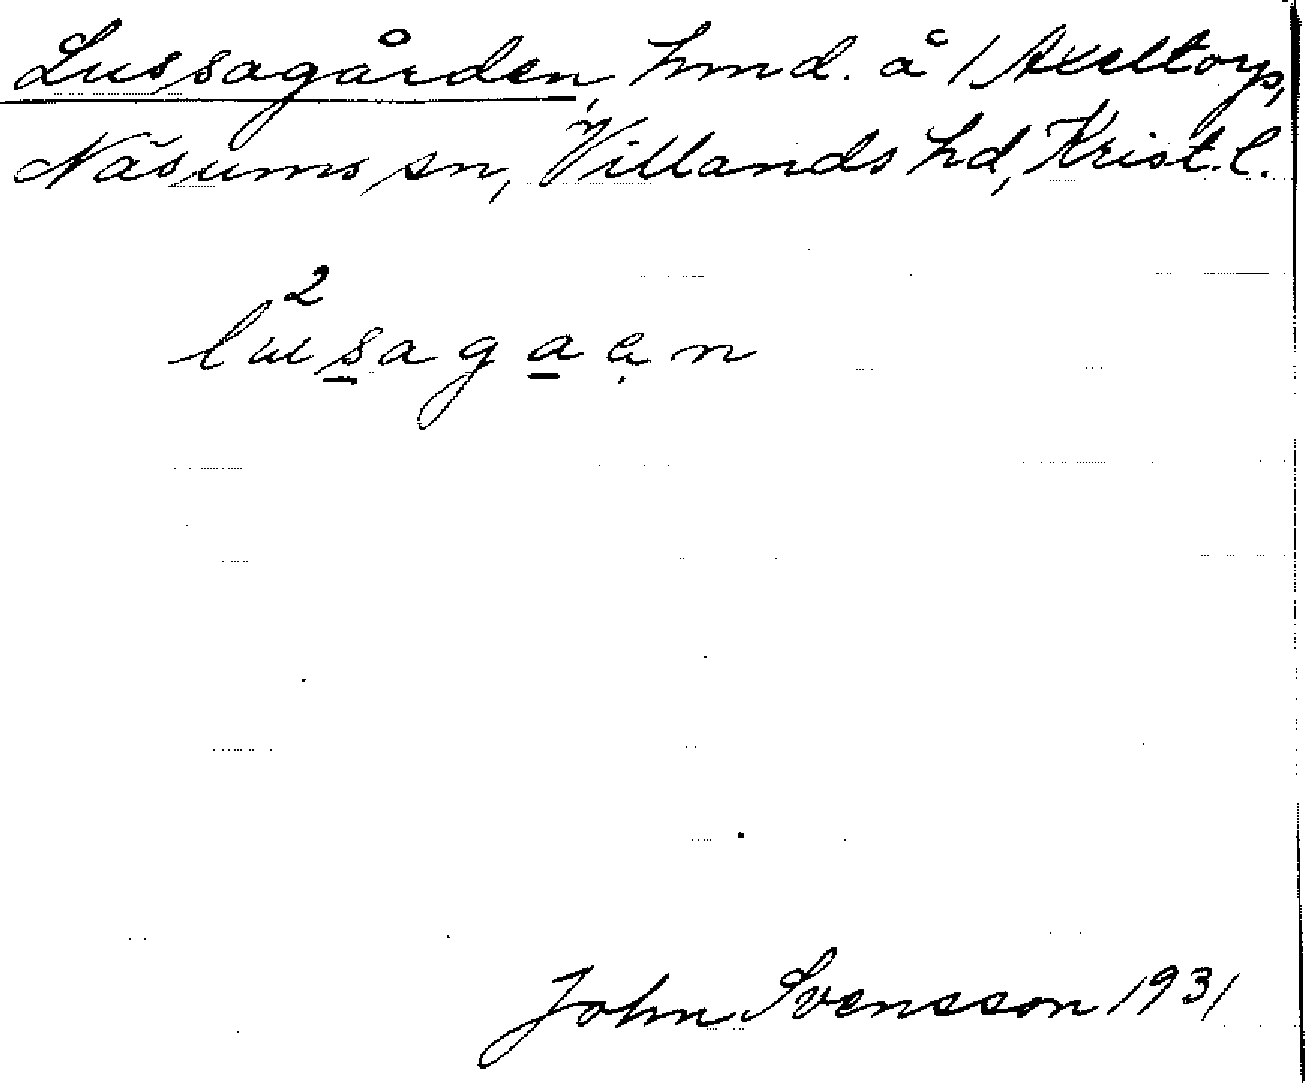 Lussagården, hmd. å 1 Axeltorp,
Näsums sn, Villands hd, Krist. l.
2
lusagaan
John Svensson 1931